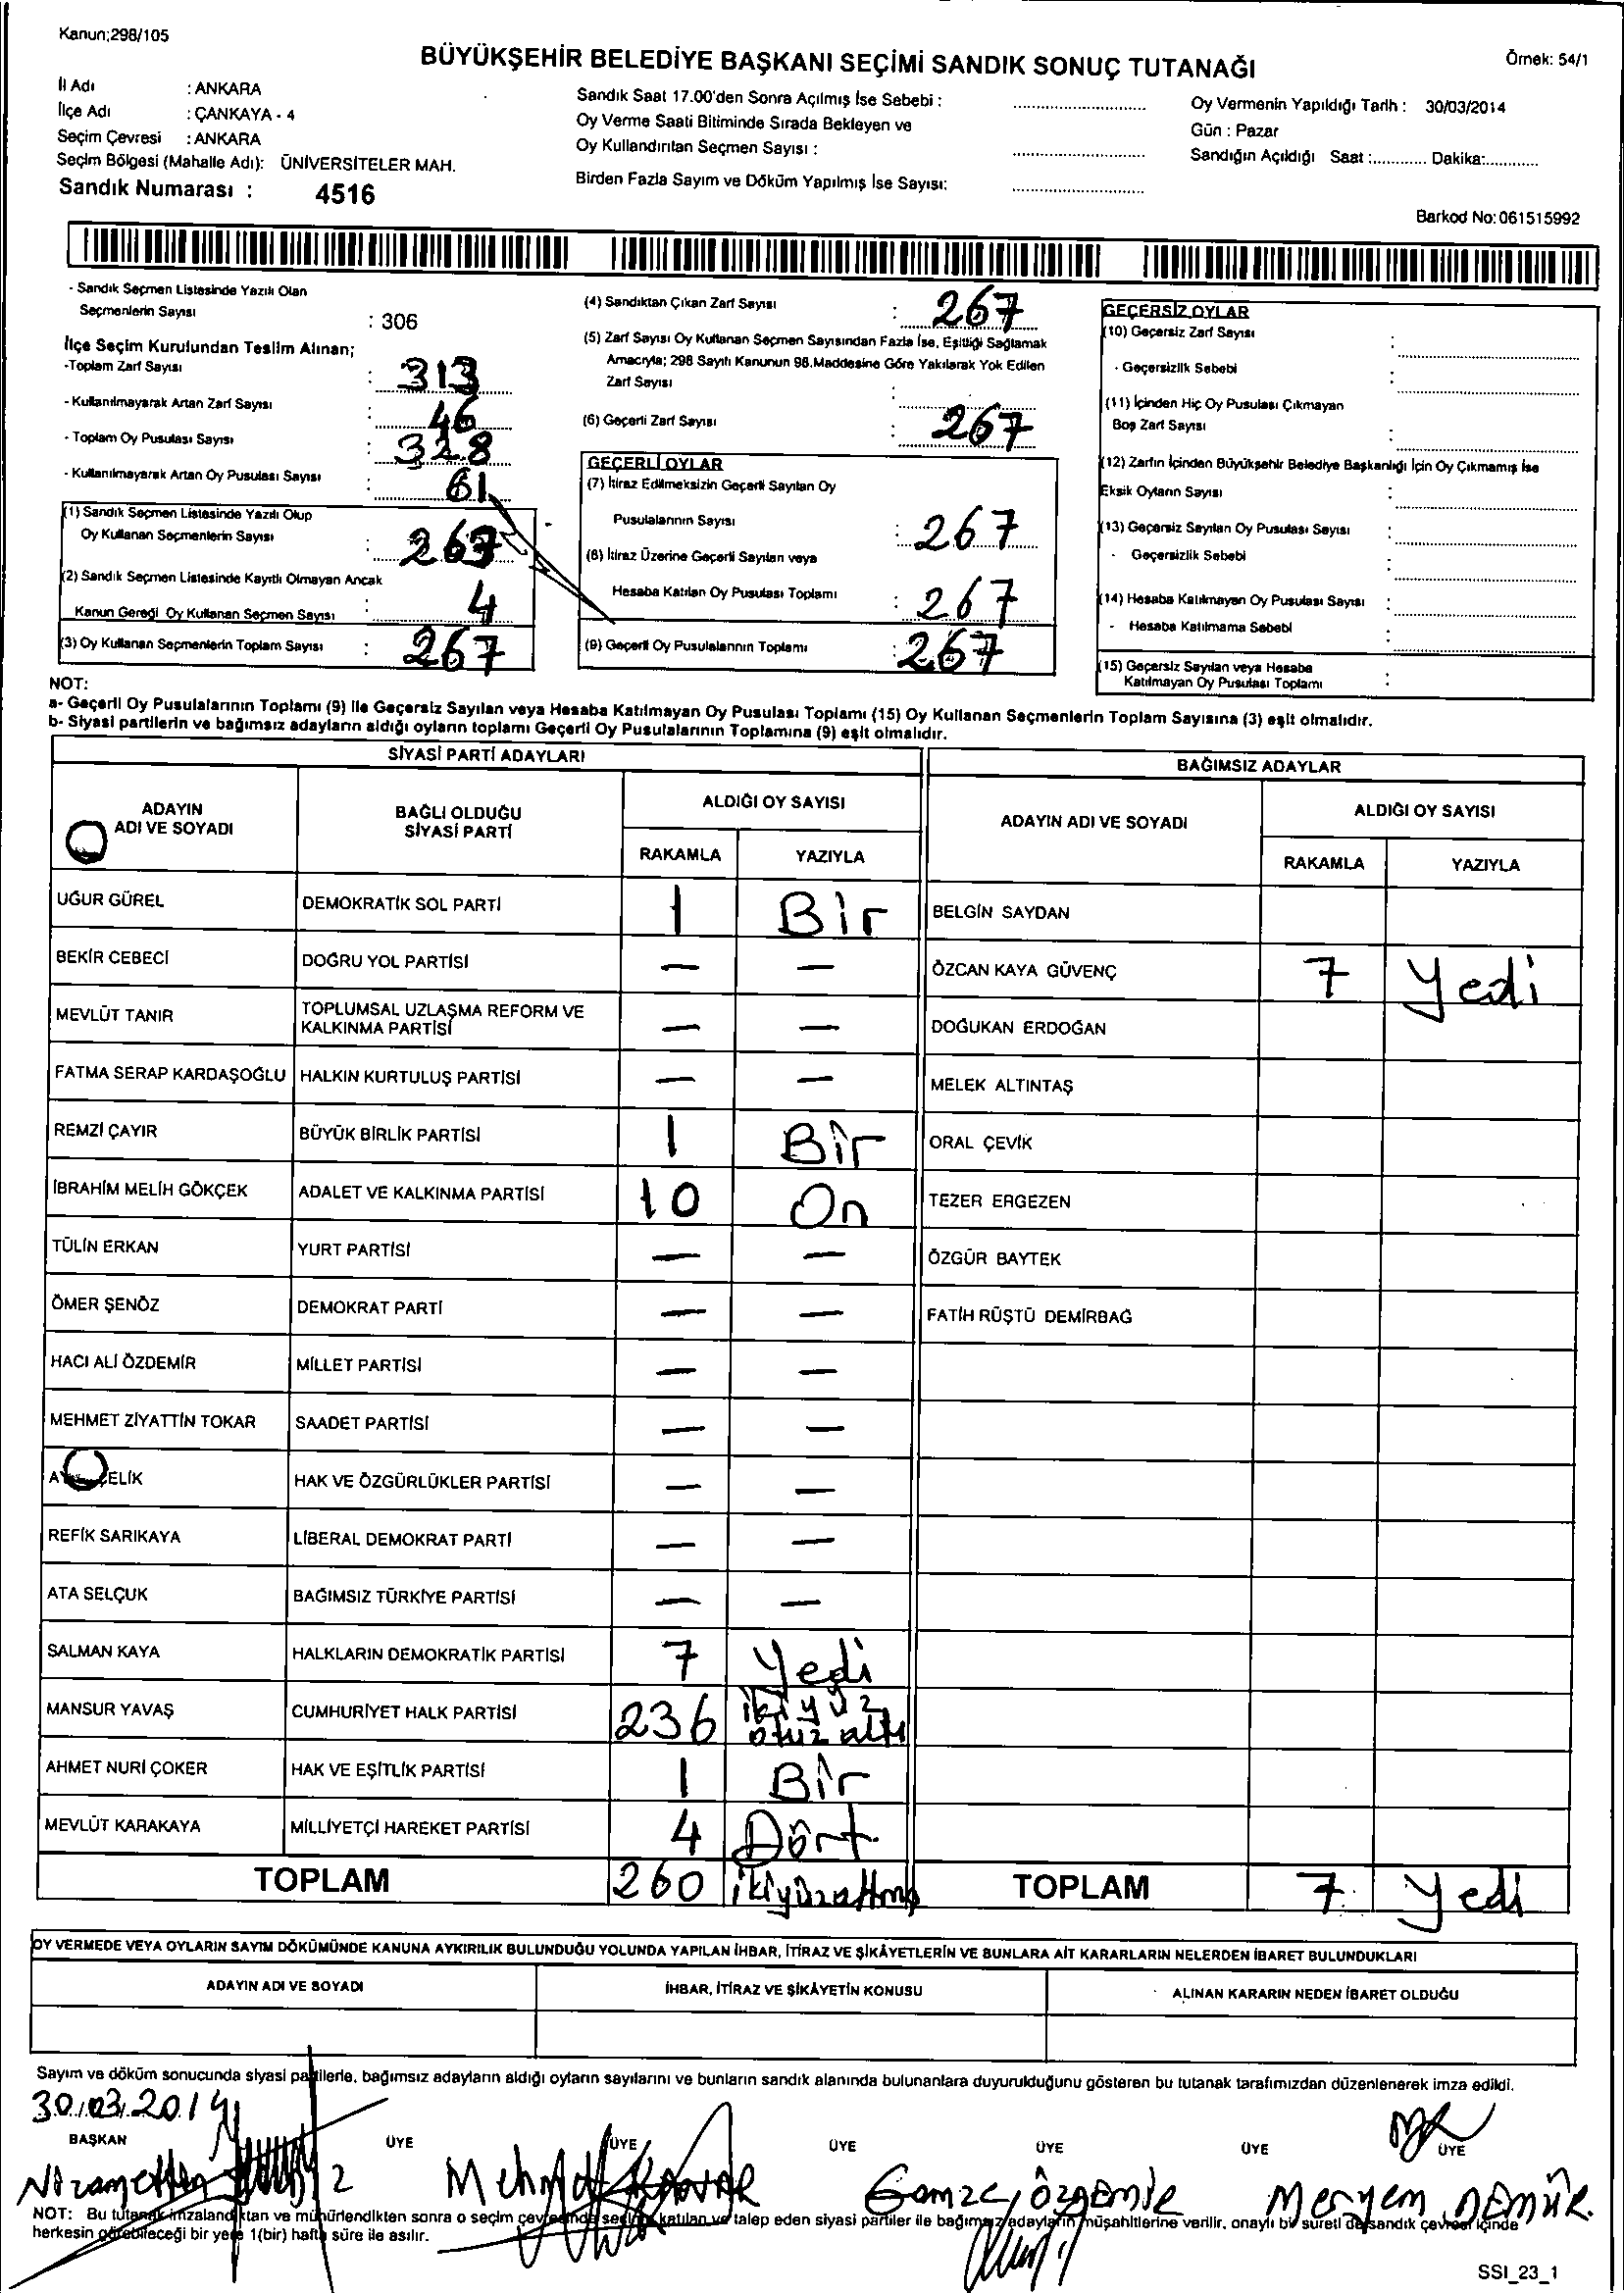 Kanun;298/105
BÜYÜKŞEHİR BELEDİYE BAŞKANI SEÇİMİ SANDIK SONUÇ TUTANAĞI
Örnek: 54/1
İl Adı : ANKARA
İlçe Adı : ÇANKAYA - 4
Seçim Çevresi : ANKARA
Seçim Bölgesi (Mahalle Adı): ÜNİVERSİTELER MAH.
Sandık Numarası : 4516
Sandık Saat 17.00'den Sonra Açılmış İse Sebebi :
Oy Verme Saati Bitiminde Sırada Bekleyen ve
Oy Kullandırılan Seçmen Sayısı :
Birden Fazla Sayım ve Döküm Yapılmış İse Sayısı:
Oy Vermenin Yapıldığı Tarih : 30/03/2014
Gün : Pazar
Sandığın Açıldığı Saat :............ Dakika:............
Barkod No: 061515992
- Sandık Seçmen Listesinde Yazılı Olan
Seçmenlerin Sayısı : 306
İlçe Seçim Kurulundan Teslim Alınan;
-Toplam Zarf Sayısı : 313
- Kullanılmayarak Artan Zarf Sayısı : 46
- Toplam Oy Pusulası Sayısı : 328
- Kullanılmayarak Artan Oy Pusulası Sayısı : 61
(1) Sandık Seçmen Listesinde Yazılı Olup
Oy Kullanan Seçmenlerin Sayısı :
(2) Sandık Seçmen Listesinde Kayıtlı Olmayan Ancak
Kanun Gereği Oy Kullanan Seçmen Sayısı : 4
(3) Oy Kullanan Seçmenlerin Toplam Sayısı : 267
(4) Sandıktan Çıkan Zarf Sayısı : 267
(5) Zarf Sayısı Oy Kullanan Seçmen Sayısından Fazla İse, Eşitliği Sağlamak
Amacıyla; 298 Sayılı Kanunun 98.Maddesine Göre Yakılarak Yok Edilen
Zarf Sayısı :
(6) Geçerli Zarf Sayısı : 267
GEÇERLİ OYLAR
(7) İtiraz Edilmeksizin Geçerli Sayılan Oy
Pusulalarının Sayısı : 267
(8) İtiraz Üzerine Geçerli Sayılan veya
Hesaba Katılan Oy Pusulası Toplamı : 267
(9) Geçerli Oy Pusulalarının Toplamı : 267
GEÇERSİZ OYLAR
(10) Geçersiz Zarf Sayısı :
- Geçersizlik Sebebi :
(11) İçinden Hiç Oy Pusulası Çıkmayan
Boş Zarf Sayısı :
(12) Zarfın İçinden Büyükşehir Belediye Başkanlığı İçin Oy Çıkmamış İse
Eksik Oyların Sayısı :
(13) Geçersiz Sayılan Oy Pusulası Sayısı :
- Geçersizlik Sebebi :
(14) Hesaba Katılmayan Oy Pusulası Sayısı :
- Hesaba Katılmama Sebebi :
(15) Geçersiz Sayılan veya Hesaba
Katılmayan Oy Pusulası Toplamı :
NOT:
a- Geçerli Oy Pusulalarının Toplamı (9) ile Geçersiz Sayılan veya Hesaba Katılmayan Oy Pusulası Toplamı (15) Oy Kullanan Seçmenlerin Toplam Sayısına (3) eşit olmalıdır.
b- Siyasi partilerin ve bağımsız adayların aldığı oyların toplamı Geçerli Oy Pusulalarının Toplamına (9) eşit olmalıdır.
SİYASİ PARTİ ADAYLARI BAĞIMSIZ ADAYLAR
ADAYIN ADI VE SOYADI BAĞLI OLDUĞU SİYASİ PARTİ ALDIĞI OY SAYISI ADAYIN ADI VE SOYADI ALDIĞI OY SAYISI
RAKAMLA YAZIYLA RAKAMLA YAZIYLA
UĞUR GÜREL DEMOKRATİK SOL PARTİ 1 Bir BELGİN SAYDAN
BEKİR CEBECİ DOĞRU YOL PARTİSİ — — ÖZCAN KAYA GÜVENÇ 7 Yedi
MEVLÜT TANIR TOPLUMSAL UZLAŞMA REFORM VE KALKINMA PARTİSİ — — DOĞUKAN ERDOĞAN
FATMA SERAP KARDAŞOĞLU HALKIN KURTULUŞ PARTİSİ — — MELEK ALTINTAŞ
REMZİ ÇAYIR BÜYÜK BİRLİK PARTİSİ 1 Bir ORAL ÇEVİK
İBRAHİM MELİH GÖKÇEK ADALET VE KALKINMA PARTİSİ 10 On TEZER ERGEZEN
TÜLİN ERKAN YURT PARTİSİ — — ÖZGÜR BAYTEK
ÖMER ŞENÖZ DEMOKRAT PARTİ — — FATİH RÜŞTÜ DEMİRBAĞ
HACI ALİ ÖZDEMİR MİLLET PARTİSİ — —
MEHMET ZİYATTİN TOKAR SAADET PARTİSİ — —
ÇELİK HAK VE ÖZGÜRLÜKLER PARTİSİ — —
REFİK SARIKAYA LİBERAL DEMOKRAT PARTİ — —
ATA SELÇUK BAĞIMSIZ TÜRKİYE PARTİSİ — —
SALMAN KAYA HALKLARIN DEMOKRATİK PARTİSİ 7 Yedi
MANSUR YAVAŞ CUMHURİYET HALK PARTİSİ 236 ikiyüz otuz altı
AHMET NURİ ÇOKER HAK VE EŞİTLİK PARTİSİ 1 Bir
MEVLÜT KARAKAYA MİLLİYETÇİ HAREKET PARTİSİ 4 Dört
TOPLAM 260 ikiyüzaltmış TOPLAM 7 Yedi
OY VERMEDE VEYA OYLARIN SAYIM DÖKÜMÜNDE KANUNA AYKIRILIK BULUNDUĞU YOLUNDA YAPILAN İHBAR, İTİRAZ VE ŞİKÂYETLERİN VE BUNLARA AİT KARARLARIN NELERDEN İBARET BULUNDUKLARI
ADAYIN ADI VE SOYADI İHBAR, İTİRAZ VE ŞİKÂYETİN KONUSU ALINAN KARARIN NEDEN İBARET OLDUĞU
Sayım ve döküm sonucunda siyasi partilerle, bağımsız adayların aldığı oyların sayılarını ve bunların sandık alanında bulunanlara duyurulduğunu gösteren bu tutanak tarafımızdan düzenlenerek imza edildi.
30.03.2014
BAŞKAN ÜYE ÜYE ÜYE ÜYE ÜYE ÜYE
Nizamettin Mehmet Gamze Özdemir Meryem DEMİR
NOT: Bu tutanak imzalandıktan ve mühürlendikten sonra o seçim çevresinde seçime katılan ve talep eden siyasi partiler ile bağımsız adayların müşahitlerine verilir, onaylı bir sureti de sandık çevresi içinde
herkesin görebileceği bir yere 1(bir) hafta süre ile asılır.
SSI_23_1